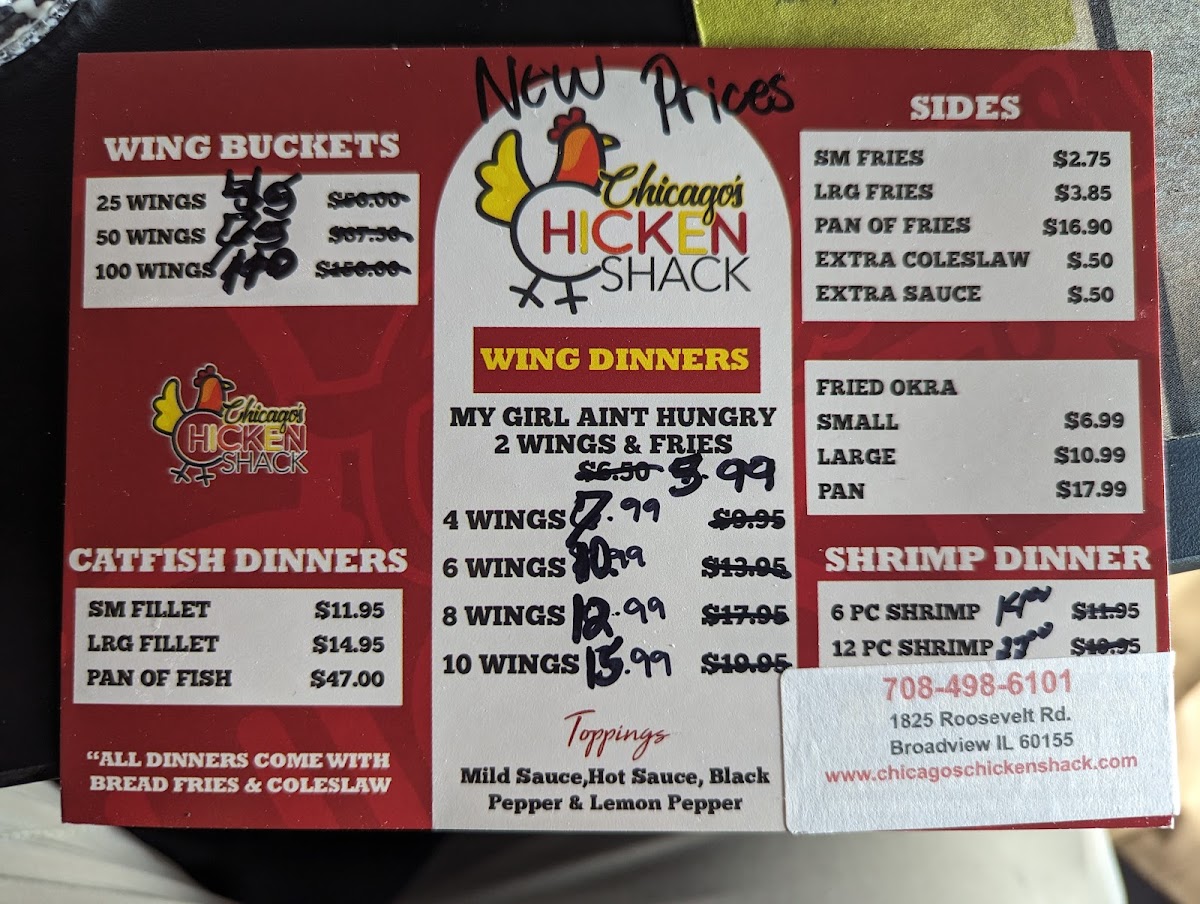 New Prices
WING BUCKETS
25 WINGS $50.00
50 WINGS $87.50
100 WINGS 140 $150.00
Chicago's
HICKEN
SHACK
CATFISH DINNERS
SM FILLET $11.95
LRG FILLET $14.95
PAN OF FISH $47.00
“ALL DINNERS COME WITH
BREAD FRIES & COLESLAW
Chicago's
HICKEN
SHACK
WING DINNERS
MY GIRL AINT HUNGRY
2 WINGS & FRIES
$6.50 5.99
4 WINGS 7.99 $9.95
6 WINGS 10.99 $13.95
8 WINGS 12.99 $17.95
10 WINGS 15.99 $19.95
Toppings
Mild Sauce,Hot Sauce, Black
Pepper & Lemon Pepper
SIDES
SM FRIES $2.75
LRG FRIES $3.85
PAN OF FRIES $16.90
EXTRA COLESLAW $.50
EXTRA SAUCE $.50
FRIED OKRA
SMALL $6.99
LARGE $10.99
PAN $17.99
SHRIMP DINNER
6 PC SHRIMP $11.95
12 PC SHRIMP $19.95
708-498-6101
1825 Roosevelt Rd.
Broadview IL 60155
www.chicagoschickenshack.com